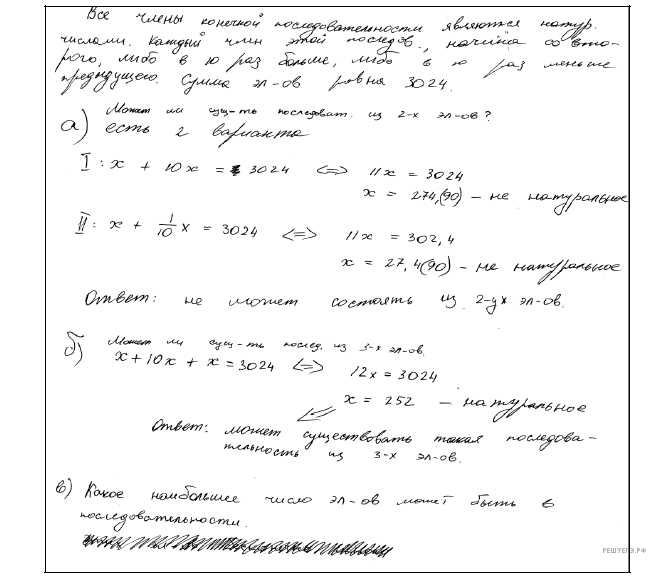 Все члены конечной последовательности являются натур.
числами. Каждый член этой последов., начиная со вто-
рого, либо в 10 раз больше, либо в 10 раз меньше
предыдущего. Сумма эл-ов равна 3024.
Может ли сущ-ть последоват. из 2-х эл-ов?
а) есть 2 варианта
I: x + 10x = 3024 <=> 11x = 3024
x = 274,(90) – не натуральное
II: x + 1/10 x = 3024 <=> 11x = 302,4
x = 27,4(90) – не натуральное
Ответ: не может состоять из 2-ух эл-ов.
б) Может ли сущ-ть послед. из 3-х эл-ов.
x + 10x + x = 3024 <=> 12x = 3024
x = 252 – натуральное
Ответ: может существовать такая последова-
тельность из 3-х эл-ов.
в) Какое наибольшее число эл-ов может быть в
последовательности.
РЕШУЕГЭ.РФ